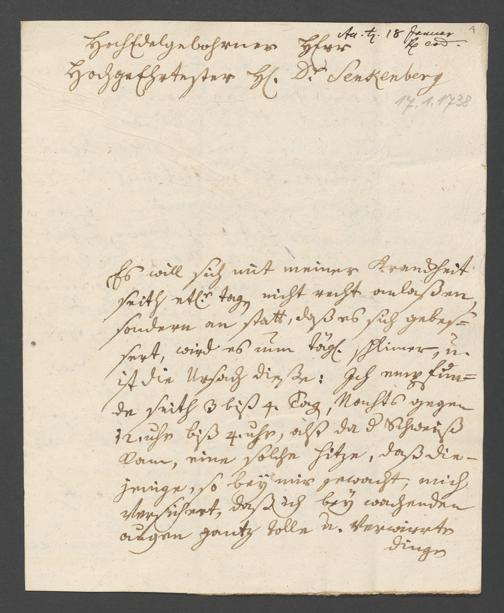 HochEdelgebohrner Herr
HochgeEhrtester H. Dr. Senckenberg
18 Januar
17.1.1738
Es will sich mit meiner Kranckheit
seith etl. tag nicht recht anlaßen,
sondern an statt, daß es sich gebes=
sert, wird es nun tägl. schlimer, u.
ist die Ursach dieße: Ich empfun=
de seith 3 biß 4 Tag, Nachts gegen
12 uhr biß 4 uhr, alß da d Schweiß
kam, eine solche Hitze, daß die=
jenige, so bey mir gewacht, mich
versichert, daß ich bey wachenden
augen gantz tolle u. verwirrte
dinge